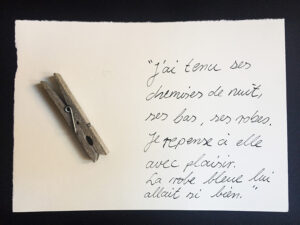 "J'ai tenu ses
chemises de nuit,
ses bas, ses robes.
Je repense à elle
avec plaisir.
La robe bleue lui
allait si bien."